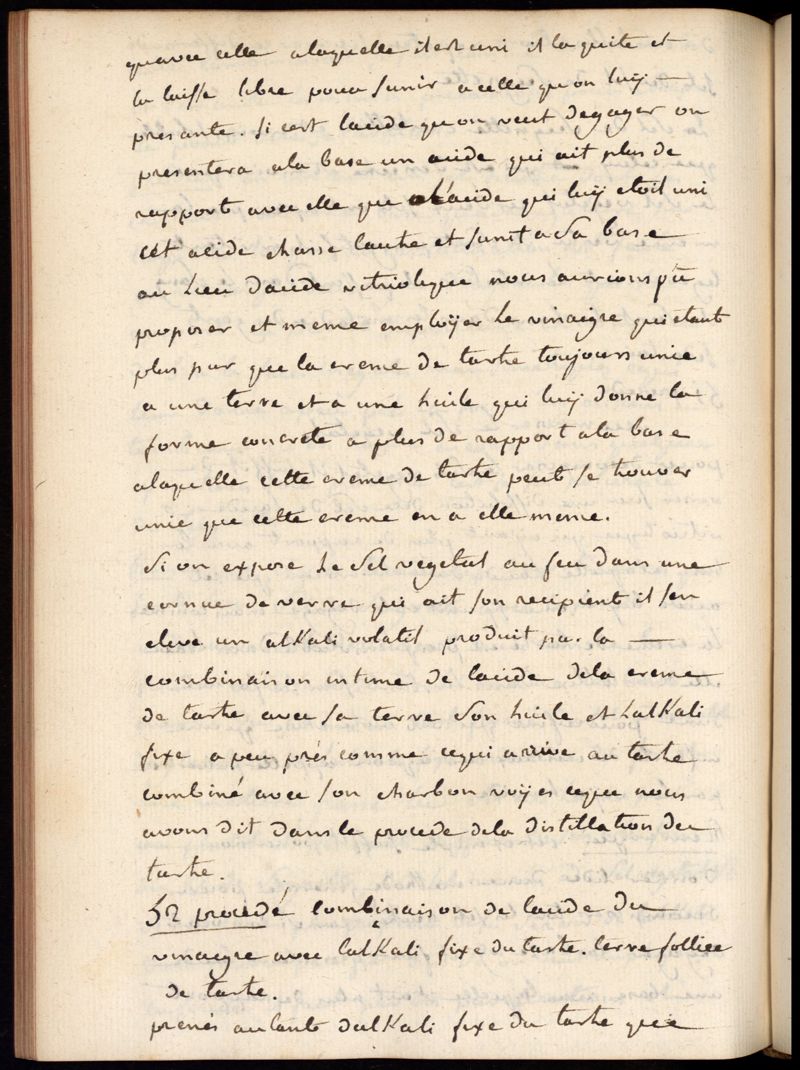 quavec celle alaquelle il est uni il la quite et
la laisse libre pour sunir a celle qu on luÿ
presante. si cest lacide qu on veut degager on
presentera ala base un acide qui ait plus de
rapport avec elle que l'acide qui luÿ etoit uni
cet acide chasse lautre et sunit a sa base
au lieu dacide vitriolique nous aurions pû
proposer et meme emploÿer le vinaigre qui etant
plus pur que la creme de tartre toujours unie
a une terre et a une huile qui luÿ donne la
forme concrete a plus de rapport ala base
alaquelle cette creme de tartre peut se trouver
unie que cette creme en a elle meme.
si on expose le sel vegetal au feu dans une
cornue de verre qui ait son recipient il sen
eleve un alKali volatil produit par la
combinaison intime de lacide dela creme
de tartre avec sa terre son huile et lalKali
fixe a peu prés comme cequi arrive au tartre
combiné avec son charbon voÿes ceque nous
avons dit dans le procede dela distillation du
tartre.
52 procedé combinaison de lacide du
vinaigre avec lalKali fixe du tartre. terre folliee
de tartre.
prenés autant dalKali fixe du tartre que